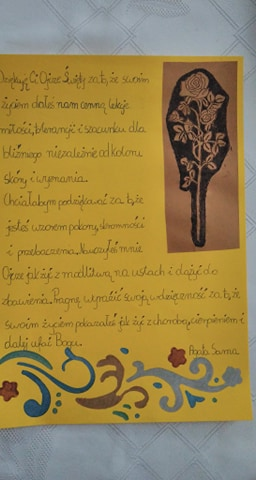 Dziękuję Ci Ojcze Święty za to, że swoim
życiem dałeś nam cenną lekcję
miłości, tolerancji i szacunku dla
bliźniego niezależnie od koloru
skóry i wyznania.
Chciałabym podziękować za to, że
jesteś wzorem pokory, skromności
i przebaczenia. Nauczyłeś mnie
Ojcze jak żyć z modlitwą na ustach i dążyć do
zbawienia. Pragnę wyrazić swoją wdzięczność za to, że
swoim życiem pokazałeś jak żyć z chorobą, cierpieniem i
dalej ufać Bogu.
Agata Sawna